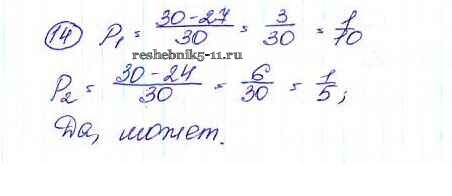 14 P₁ = (30-27)/30 = 3/30 = 1/10
reshebnik5-11.ru
P₂ = (30-24)/30 = 6/30 = 1/5;
Да, может.